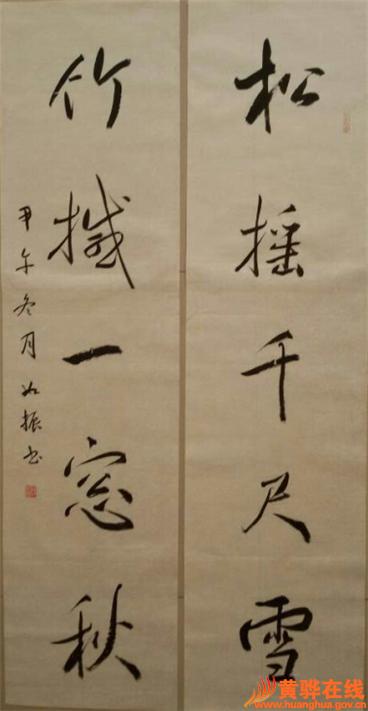 松摇千尺雪
竹撼一窓秋
甲午冬月如振书
黄骅在线
www.huanghua.gov.cn